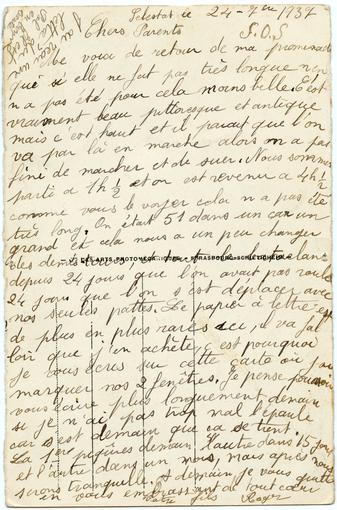 Selestat le 24-7bre 1937
S.O.S
Chers Parents
Me voici de retour de ma promenade
qué si elle ne fut pas très longue n'en
n'a pas été pour cela moins belle. C'est
vraiment beau pittoresque et antique
mais c'est haut et il parait que l'on
va par là en marche alors on a pas
fini de marcher et de suer. Nous sommes
parti a 1h 1/2 et on est revenu a 4h 1/2
comme vous le voyez cela n'a pas été
très long. On était 51 dans un car un
grand et cela nous a un peu changer
les
depuis 24 jours que l'on avait pas roulé
24 jours que l'on s'est déplacer avec
nos seules pattes. Le papier à lettre est
de plus en plus rares ici, il va fal
loir que j'en achète, c'est pourquoi
je vous écris sur cette carte où j'ai
marquer nos 2 fenêtres. Je pense pouvoir
vous écrire plus longuement demain
si je n'ai pas trop mal l'épaule
car c'est demain que ca se tient.
La 1er piqûres demain l'autre dans 15 jours
et l'autre dans un mois, mais après nous
serons tranquille. A demain je vous quitte
en vous embrassant de tout cœur
Votre fils Roger